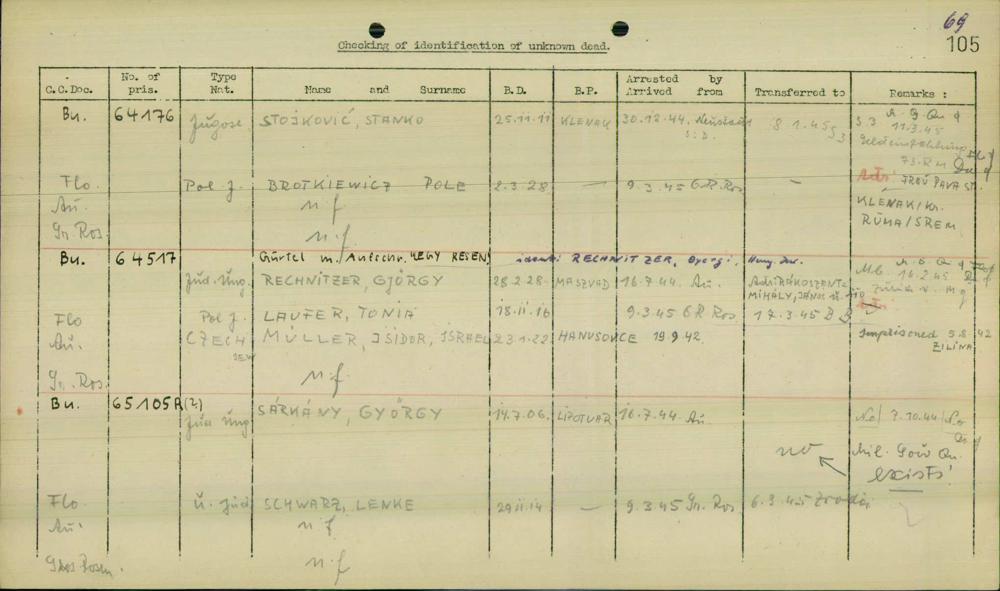 69
105
Checking of identification of unknown dead.
C.C.Doc. No. of pris. Type Nat. Name and Surname B.D. B.P. Arrested by Arrived from Transferred to Remarks :
Bu. 64176 Jugosl. STOJKOVIĆ, STANKO 25.11.11 KLENAK 30.12.44. Neustadt S.D. 8.1.45 S3 S.3 11.3.45
73.RM
Flo. Pol J. BROTKIEWICZ POLE 2.3.28 — 9.3.45 GR.Ros — PAVA ST.
Au. n.f KLENAK/Kr.
Gr. Ros. n.f RUMA/SREM
Bu. 64517 Gürtel m. Aufschr. RECHNITZER,
Jüd. Ung. RECHNITZER, GJÖRGY 28.2.28. 16.7.44. Au. 16.2.45
MIHALY, JÁNOS
Flo Pol J. LAUFER, TONIA 15.11.16 9.3.45 GR Ros 17.3.45 B B
Au. CZECH JEW MÜLLER, ISIDOR, ISRAEL 23.1.22 HANUSOVCE 19.9.42. Imprisoned 5.8.42 ZILINA
Gr. Ros. n.f
Bu. 65105A(2) Jüd Ung SÁRKÁNY, GYÖRGY 14.7.06. LIPOTVAR 16.7.44. Au. 7.10.44
no Mil. Gov Qu.
exists!
Flo. U. Jüd SCHWARZ, LENKE 29.11.14 — 9.3.45 Gr. Ros. 6.3.45
Au. n.f
Gros Rosen. n.f